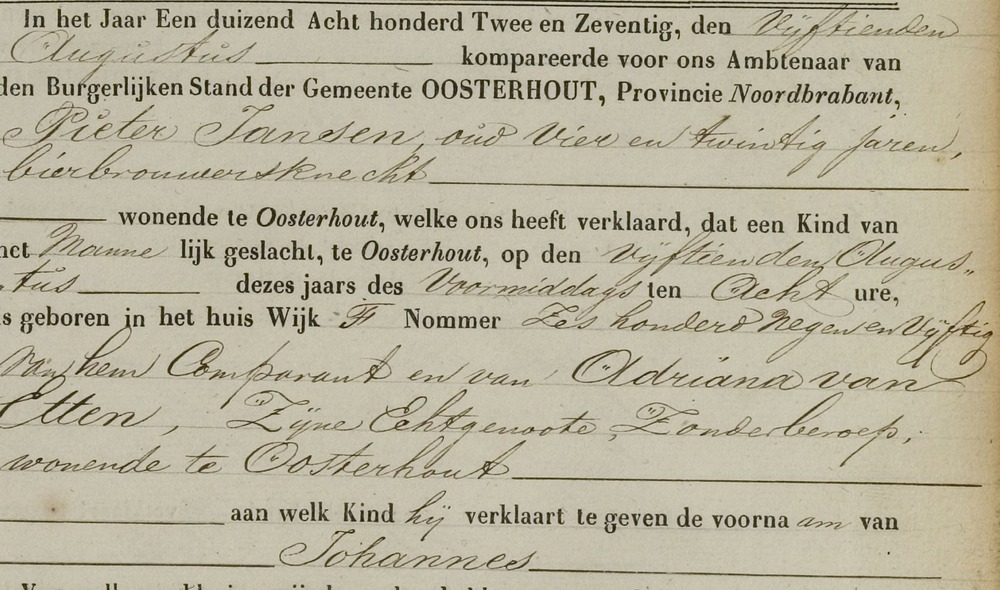 In het Jaar Een duizend Acht honderd Twee en Zeventig, den Vijftienden
Augustus kompareerde voor ons Ambtenaar van
den Burgerlijken Stand der Gemeente OOSTERHOUT, Provincie Noordbrabant,
Pieter Jansen, oud Vier en twintig jaren,
bierbrouwersknecht
wonende te Oosterhout, welke ons heeft verklaard, dat een Kind van
het Manne lijk geslacht, te Oosterhout, op den Vijftienden Augus„
tus dezes jaars des Voormiddags ten Acht ure,
is geboren in het huis Wijk F Nommer Zes honderd Negen en Vijftig
van hem Comparant en van Adriana van
Etten, Zijne Echtgenoote, Zonder beroep,
wonende te Oosterhout
aan welk Kind hij verklaart te geven de voorna am van
Johannes